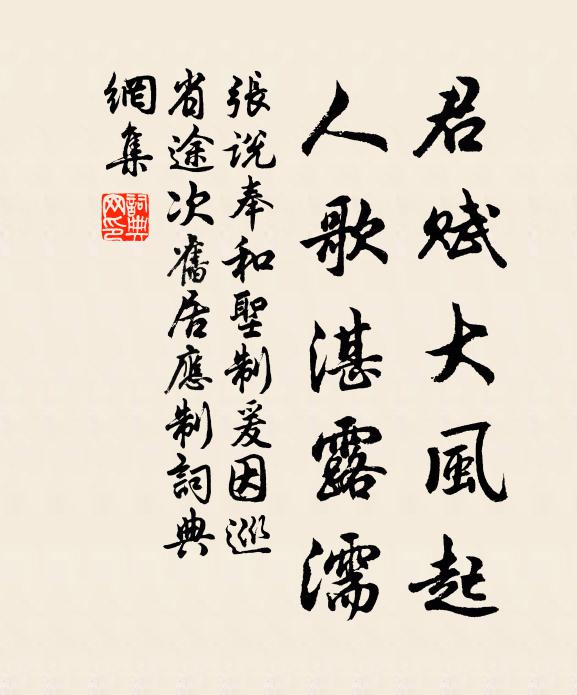 君賦大風起
人歌湛露濡
張說奉和聖制爰因巡
省途次舊居應制詞典
網集
詞典
网印